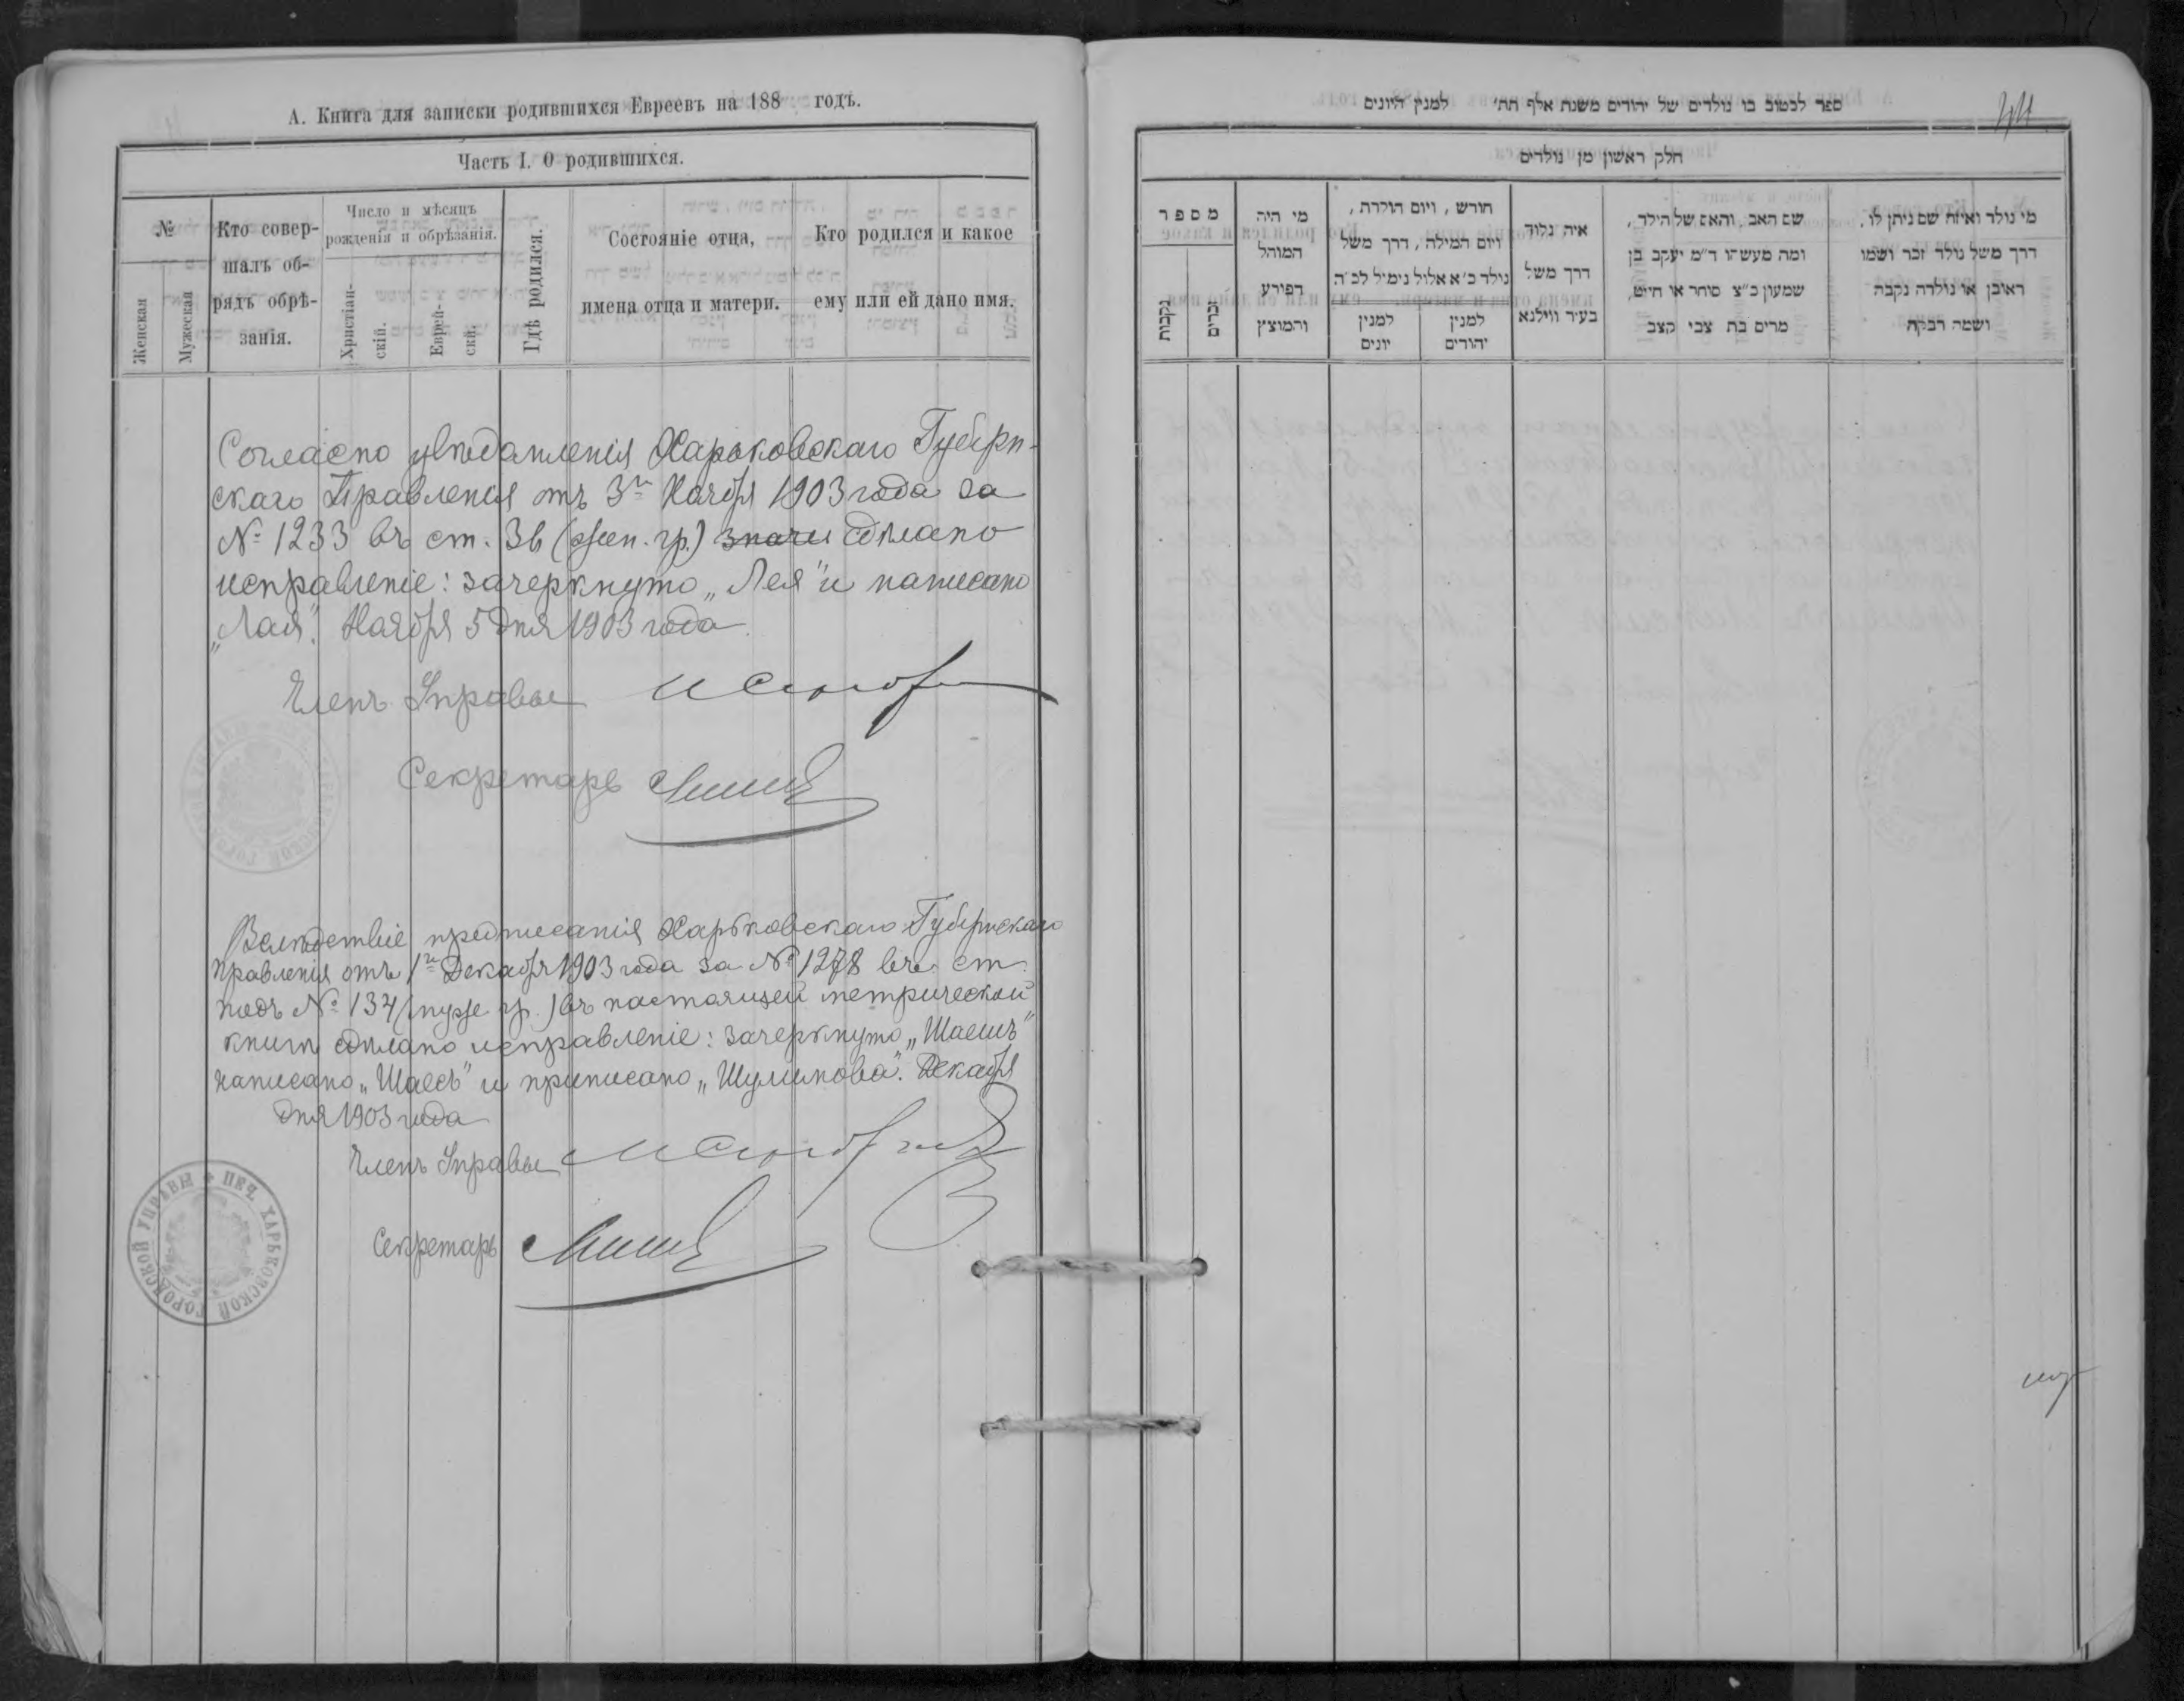 А. Книга для записки родившихся Евреевъ на 188 годъ.
Часть I. О родившихся.
№
Женская
Мужеская
Кто совер-
шалъ об-
рядъ обрѣ-
занія.
Число и мѣсяцъ
рожденія и обрѣзанія.
Христіан-
скій.
Еврей-
скій.
Гдѣ родился.
Состояніе отца,
имена отца и матери.
Кто родился и какое
ему или ей дано имя.
Согласно увѣдомленія Харьковскаго Губерн-
скаго Правленія отъ 3го Ноября 1903 года за
№ 1233 въ ст. 36 (жен. гр.) сдѣлано
исправленіе: зачеркнуто „Лея" и написано
„Лая". Ноября 5 дня 1903 года.
Членъ Управы
Секретарь
Вслѣдствіе предписанія Харьковскаго Губернскаго
Правленія отъ 1го Декабря 1903 года за № 1278 въ ст.
подъ № 134 (муже. гр.) въ настоящей метрической
книгѣ сдѣлано исправленіе: зачеркнуто „Шаемъ"
написано „Шаесъ" и приписано „Шулимова". Декабря
дня 1903 года
Членъ Управы
Секретарь
ПЕЧ. ХАРЬКОВСКОЙ ГОРОДСКОЙ УПРАВЫ
ספר לכטוב בו נולדים של יהודים משנת אלף תת' למנין היונים
44
חלק ראשון מן נולדים
מספר
נקבות
זכרים
מי היה
המוהל
הפורע
והמוצץ
חודש, ויום הולדת,
ויום המילה, דרך משל
נולד כ׳א אלול נימול לכ״ה
למנין
יונים
למנין
יהודים
איה נלוד
דרך משל
בעיר ווילנא
שם האב, והאם של הילד,
ומה מעשהו ד״מ יעקב בן
שמעון כ״צ סוחר או חייט,
מרים בת צבי קצב
מי נולד ואיזה שם ניתן לו,
דרך משל נולד זכר ושמו
ראובן או נולדה נקבה
ושמה רבקה